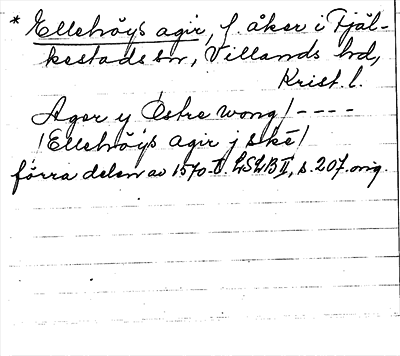 * Ellehöys agir, f. åker i Fjäl-
kestads sn, Villands hd,
Krist. l.
Ager y Östre wong / - - - -
/ Ellehöÿs agir j skė /
förra delen av 1570-t. LSLB II, s. 207. orig.